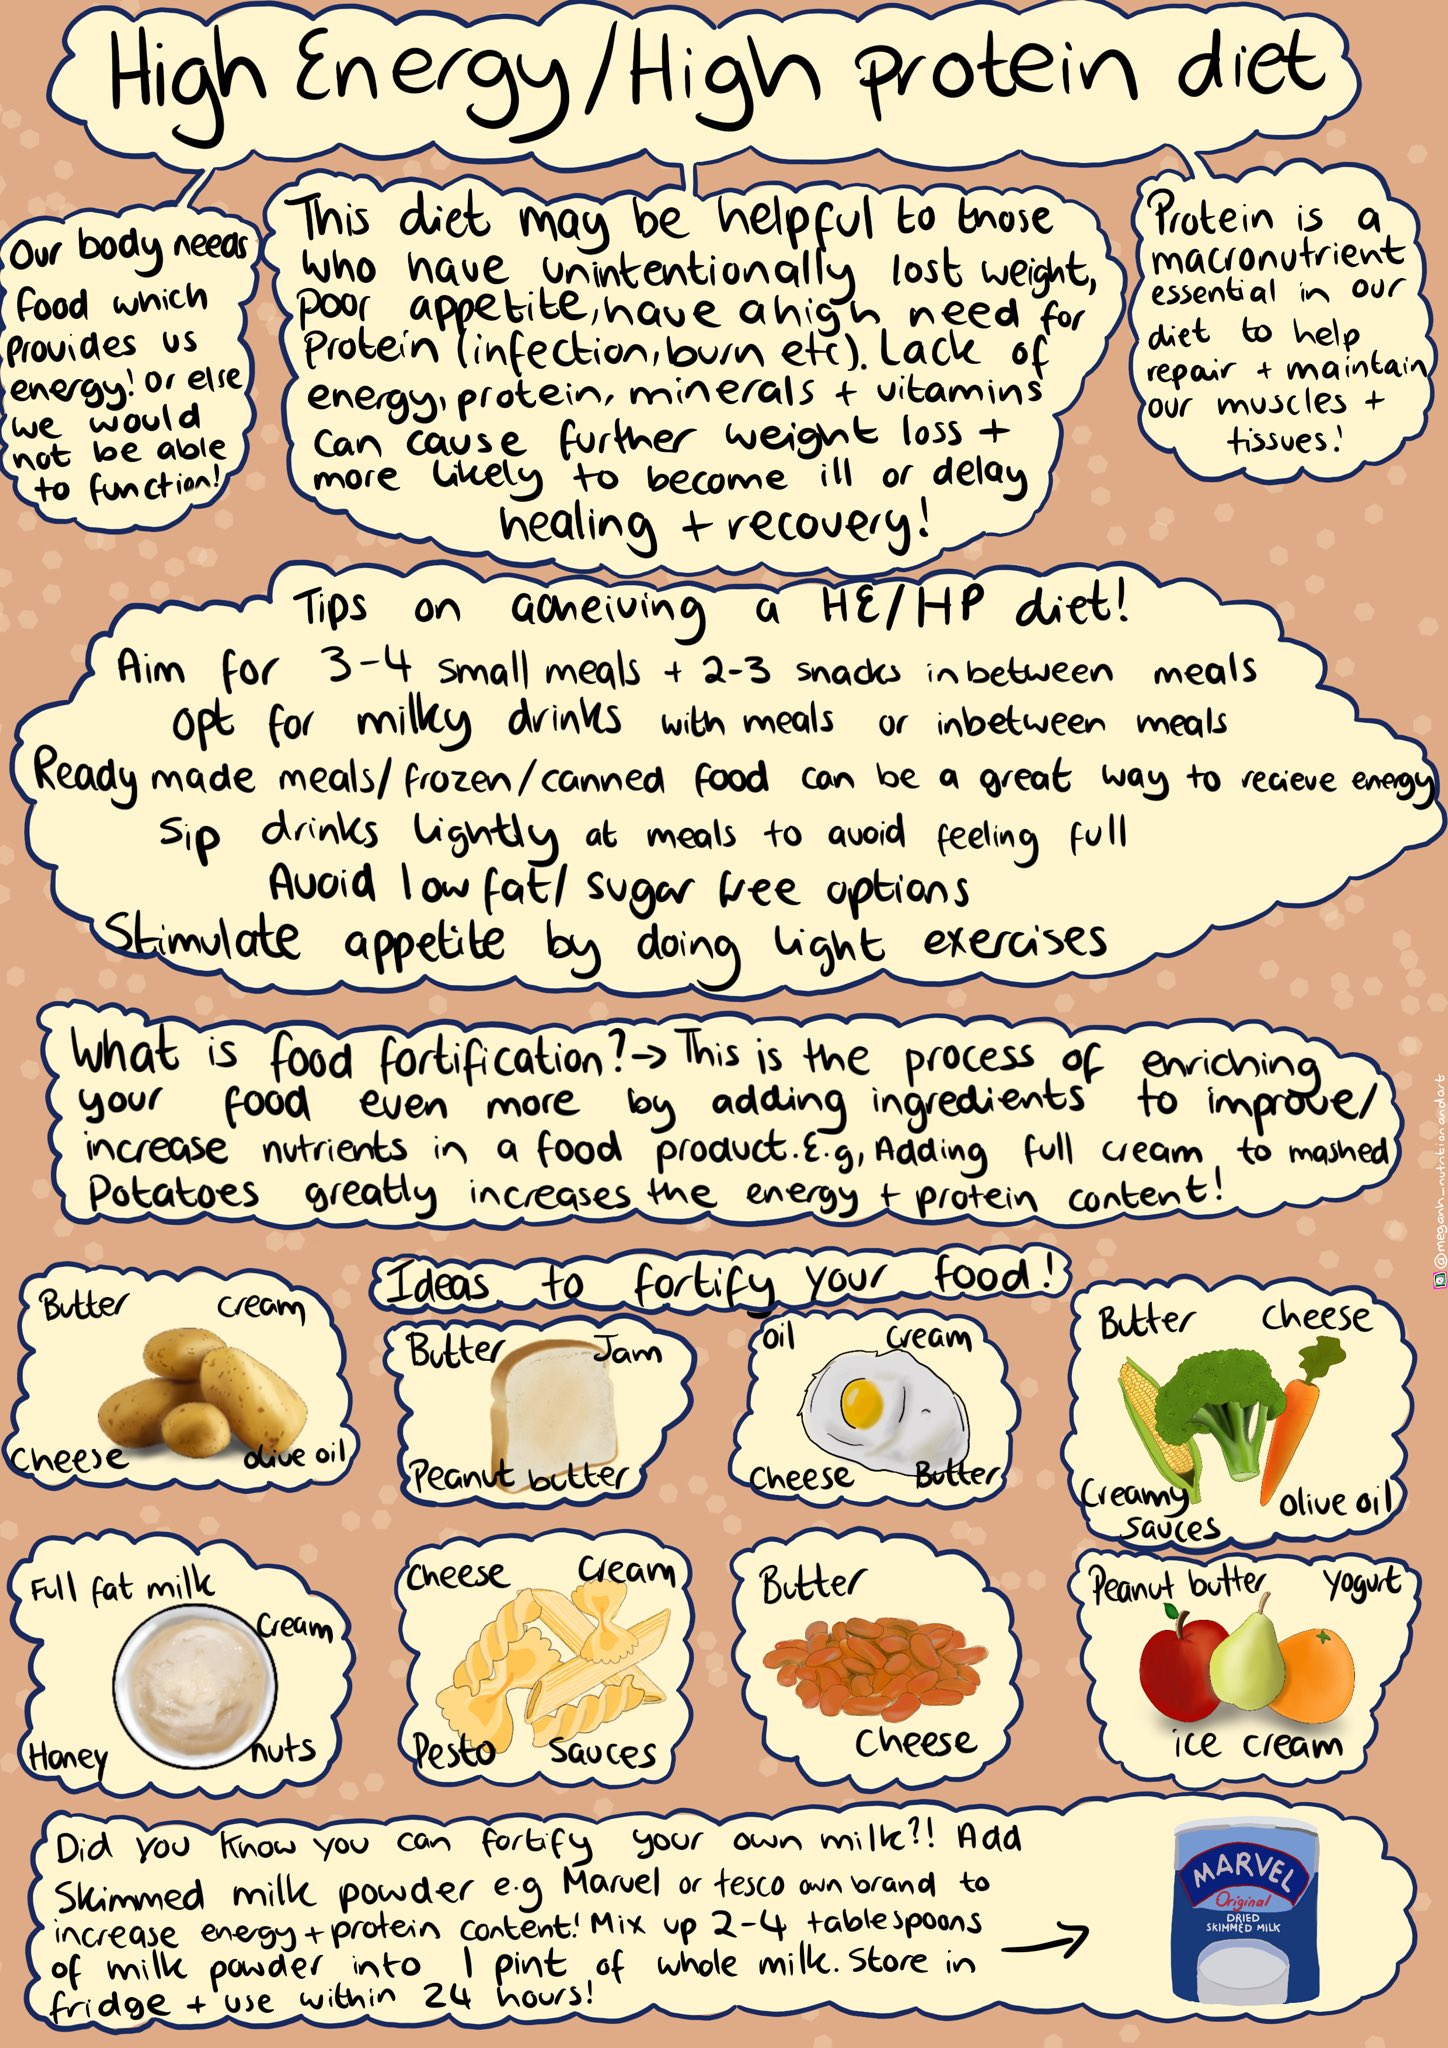 High Energy/High protein diet
Our body needs
food which
provides us
energy! Or else
we would
not be able
to function!
This diet may be helpful to those
who have unintentionally lost weight,
poor appetite, have a high need for
protein (infection, burn etc). Lack of
energy, protein, minerals + vitamins
can cause further weight loss +
more likely to become ill or delay
healing + recovery!
Protein is a
macronutrient
essential in our
diet to help
repair + maintain
our muscles +
tissues!
Tips on acheiving a HE/HP diet!
Aim for 3-4 small meals + 2-3 snacks inbetween meals
Opt for milky drinks with meals or inbetween meals
Ready made meals/frozen/canned food can be a great way to recieve energy
Sip drinks lightly at meals to avoid feeling full
Avoid low fat/ sugar free options
Stimulate appetite by doing light exercises
What is food fortification?→ This is the process of enriching
your food even more by adding ingredients to improve/
increase nutrients in a food product. E.g, Adding full cream to mashed
Potatoes greatly increases the energy + protein content!
@meganh_nutritionandart
Ideas to fortify your food!
Butter cream
Cheese olive oil
Butter Jam
Peanut butter
oil cream
Cheese Butter
Butter Cheese
Creamy
sauces
olive oil
Full fat milk
Cream
Honey nuts
Cheese Cream
Pesto sauces
Butter
Cheese
Peanut butter Yogurt
ice cream
Did you know you can fortify your own milk?! Add
Skimmed milk powder e.g Marvel or tesco own brand to
increase energy + protein content! Mix up 2-4 tablespoons
of milk powder into 1 pint of whole milk. Store in
fridge + use within 24 hours!
MARVEL
Original
DRIED
SKIMMED MILK